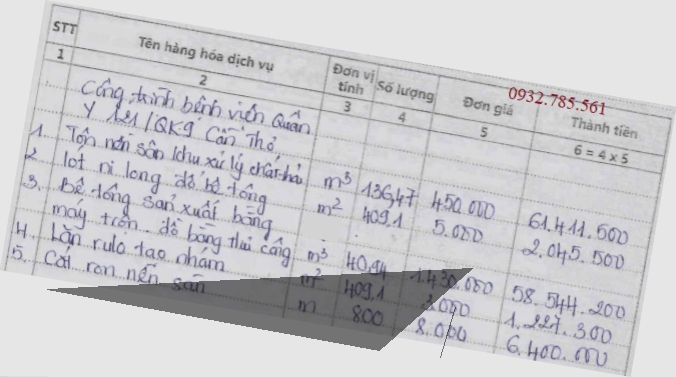 0932.785.561
STT Tên hàng hóa dịch vụ Đơn vị tính Số lượng Đơn giá Thành tiền
1 2 3 4 5 6 = 4 x 5
Công trình bệnh viện Quân
Y 121/QK9 Cần Thơ
1. Tôn nền sân khu xử lý chất thải m³ 136,47 450.000 61.411.500
2 lót ni long đổ bê tông m² 409.1 5.000 2.045.500
3. Bê tông sản xuất bằng
máy trộn đổ bằng thủ công m³ 40,94 1.430.000 58.544.200
4. Lăn rulo tạo nhám m² 409.1 3.000 1.227.300
5. Cắt ron nền sân m 800 8.000 6.400.000